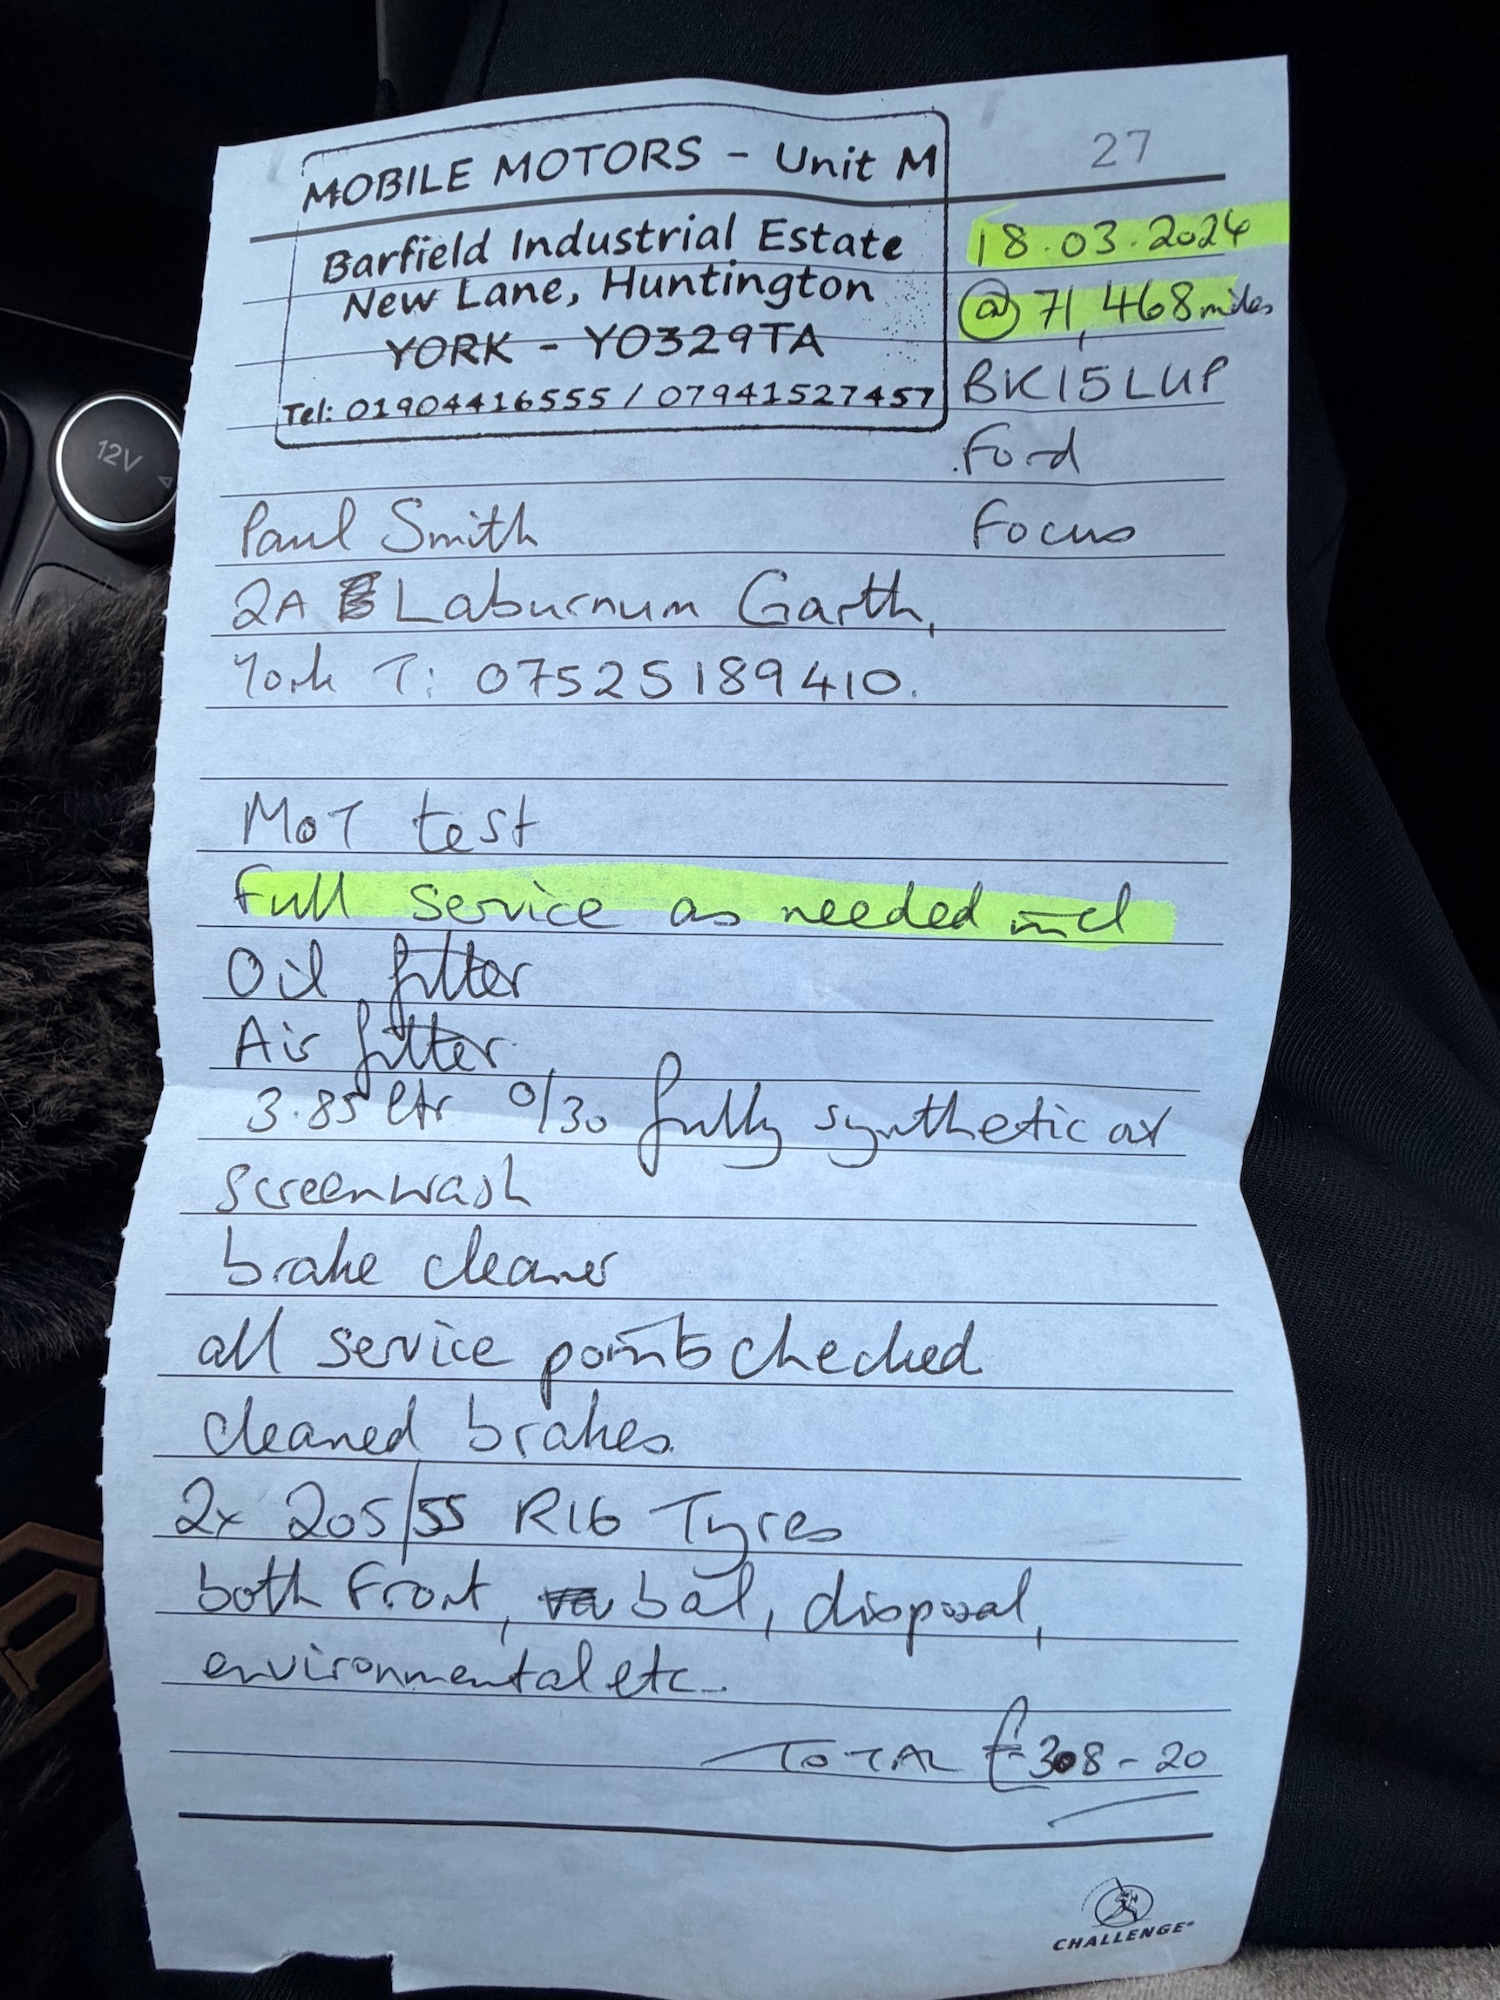 27
MOBILE MOTORS - Unit M
Barfield Industrial Estate
New Lane, Huntington
YORK - YO329TA
Tel: 01904416555 / 07941527457
18.03.2024
@ 71,468 miles
BK15LUP
Ford
Focus
Paul Smith
2A Laburnum Garth,
York T: 07525189410.
MOT test
Full service as needed incl
Oil filter
Air filter
3.85 ltr 0/30 fully synthetic oil
screenwash
brake cleaner
all service points checked
cleaned brakes.
2x 205/55 R16 Tyres
both front, bal, disposal,
environmental etc..
TOTAL £308-20
CHALLENGE®
12V